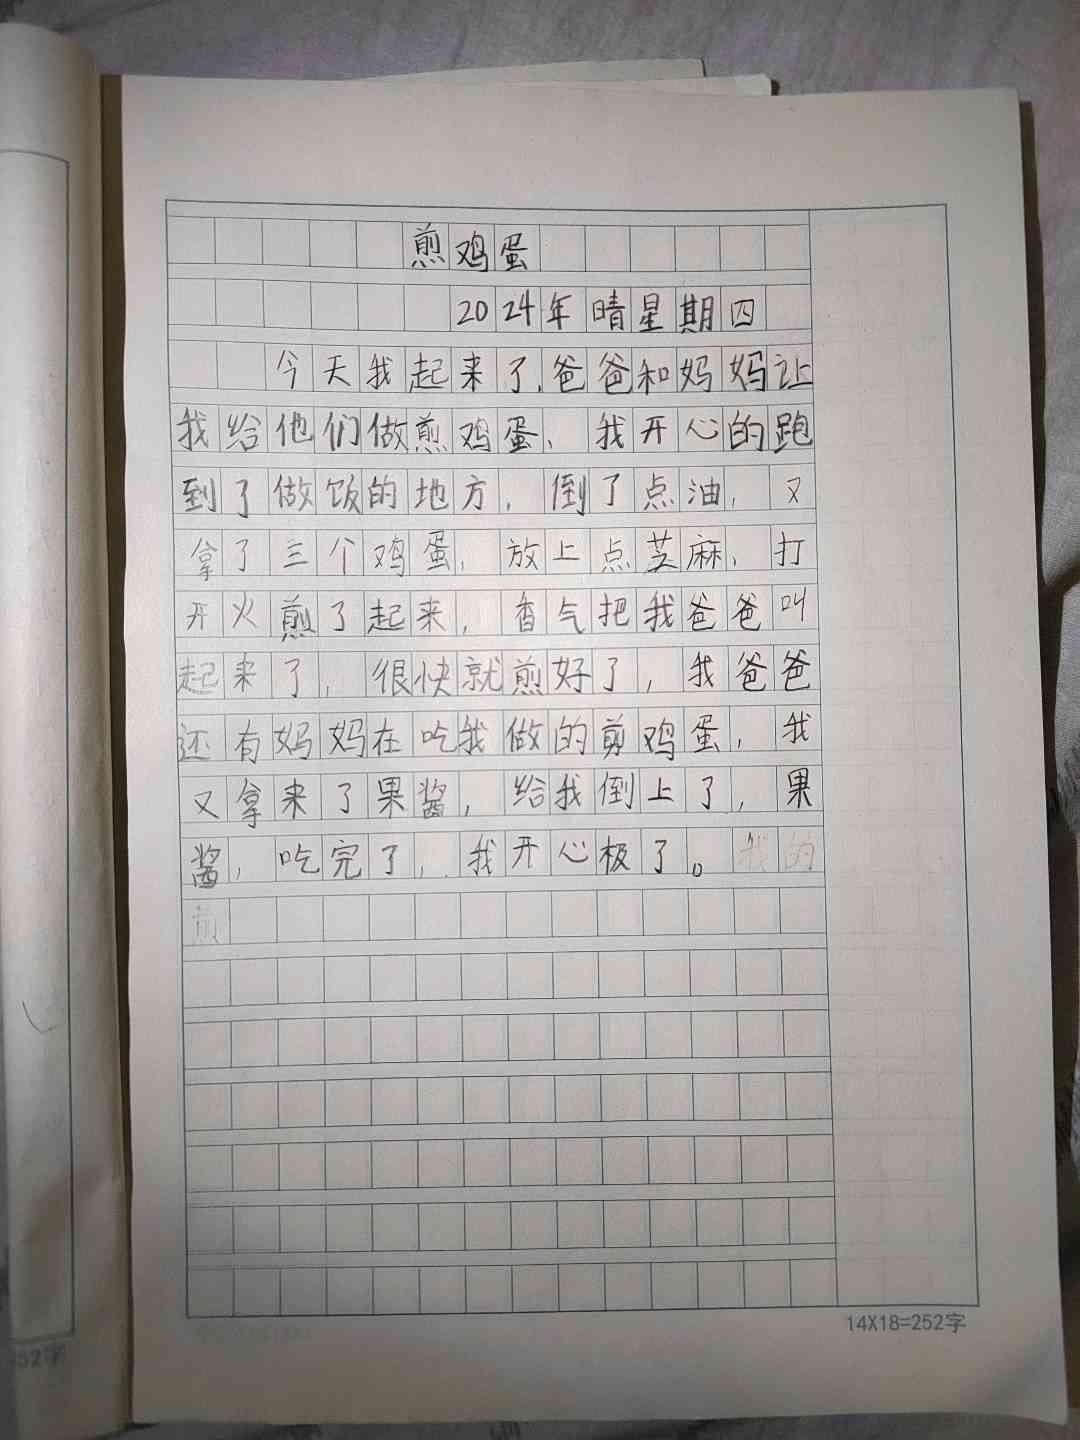 煎鸡蛋
2024年晴星期四
今天我起来了,爸爸和妈妈让
我给他们做煎鸡蛋、我开心的跑
到了做饭的地方,倒了点油,又
拿了三个鸡蛋,放上点芝麻、打
开火煎了起来,香气把我爸爸叫
起来了,很快就煎好了,我爸爸
还有妈妈在吃我做的剪鸡蛋,我
又拿来了果酱,给我倒上了,果
酱,吃完了,我开心极了。我的
煎
14X18=252字
52字